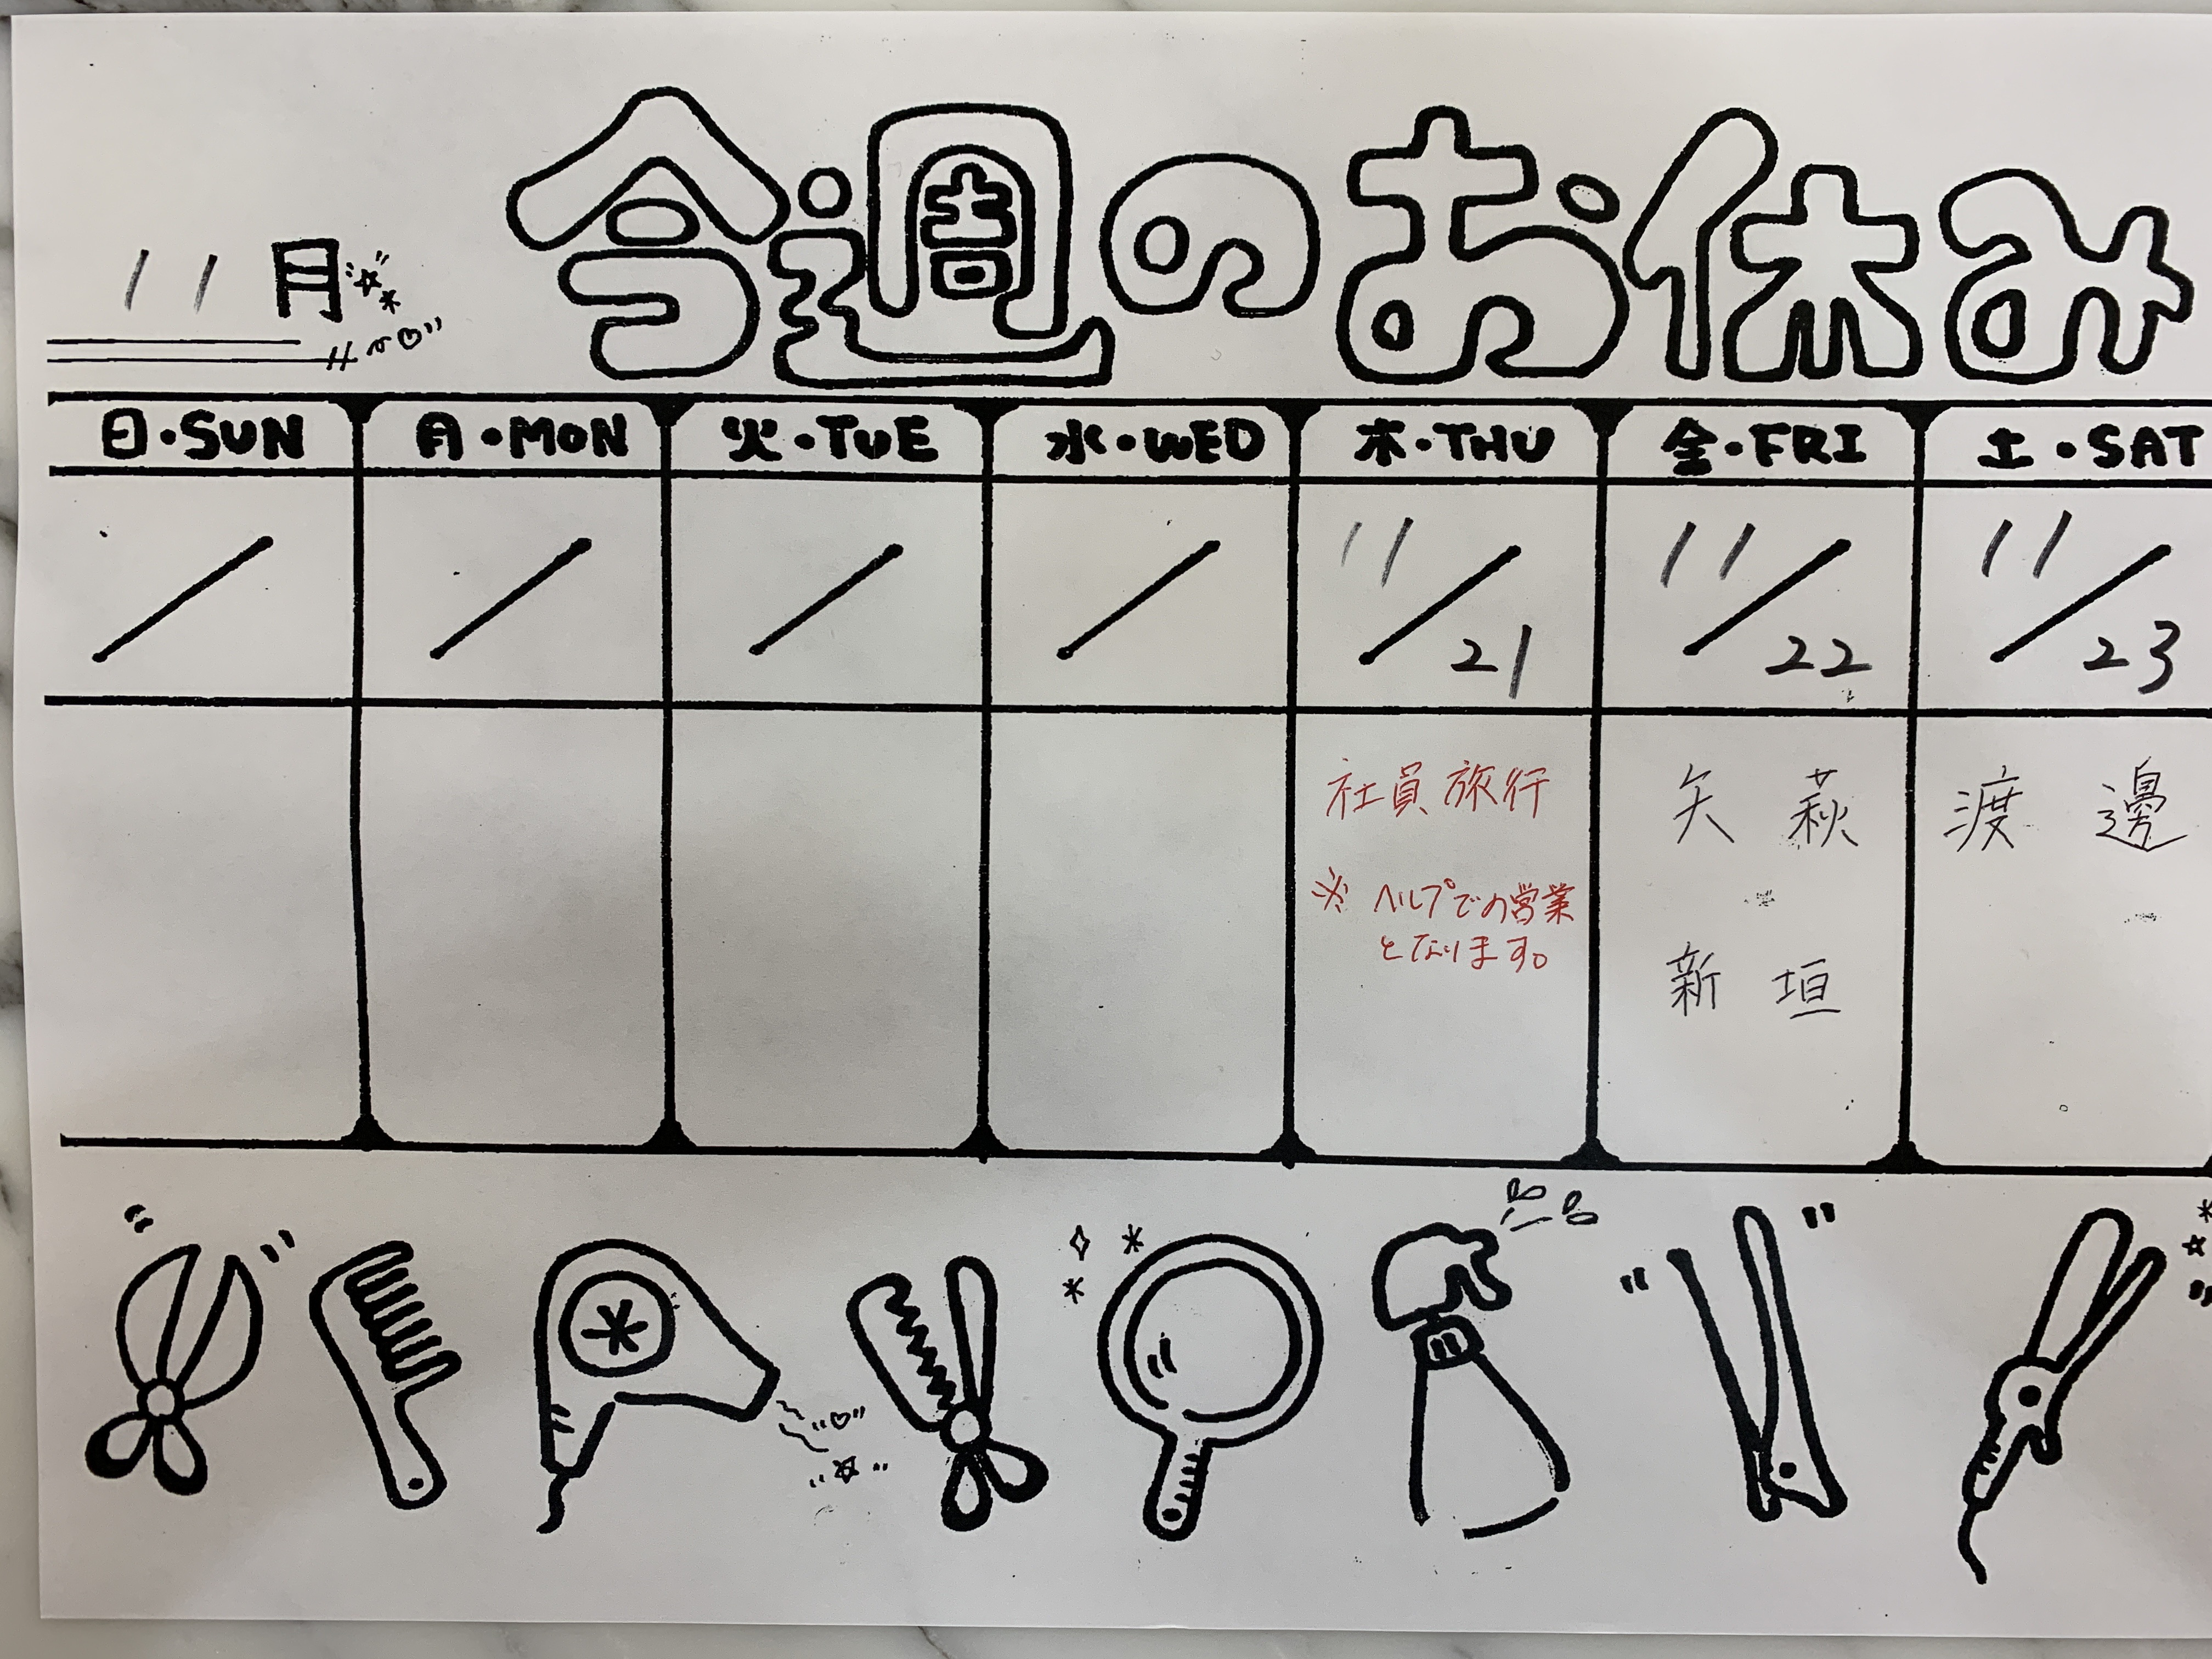 今週のお休み
11月
日・SUN 月・MON 火・TUE 水・WED 木・THU 金・FRI 土・SAT
/ / / / 11/21 11/22 11/23
社員旅行
※ ヘルプでの営業
となります。
矢萩
新垣
渡邊